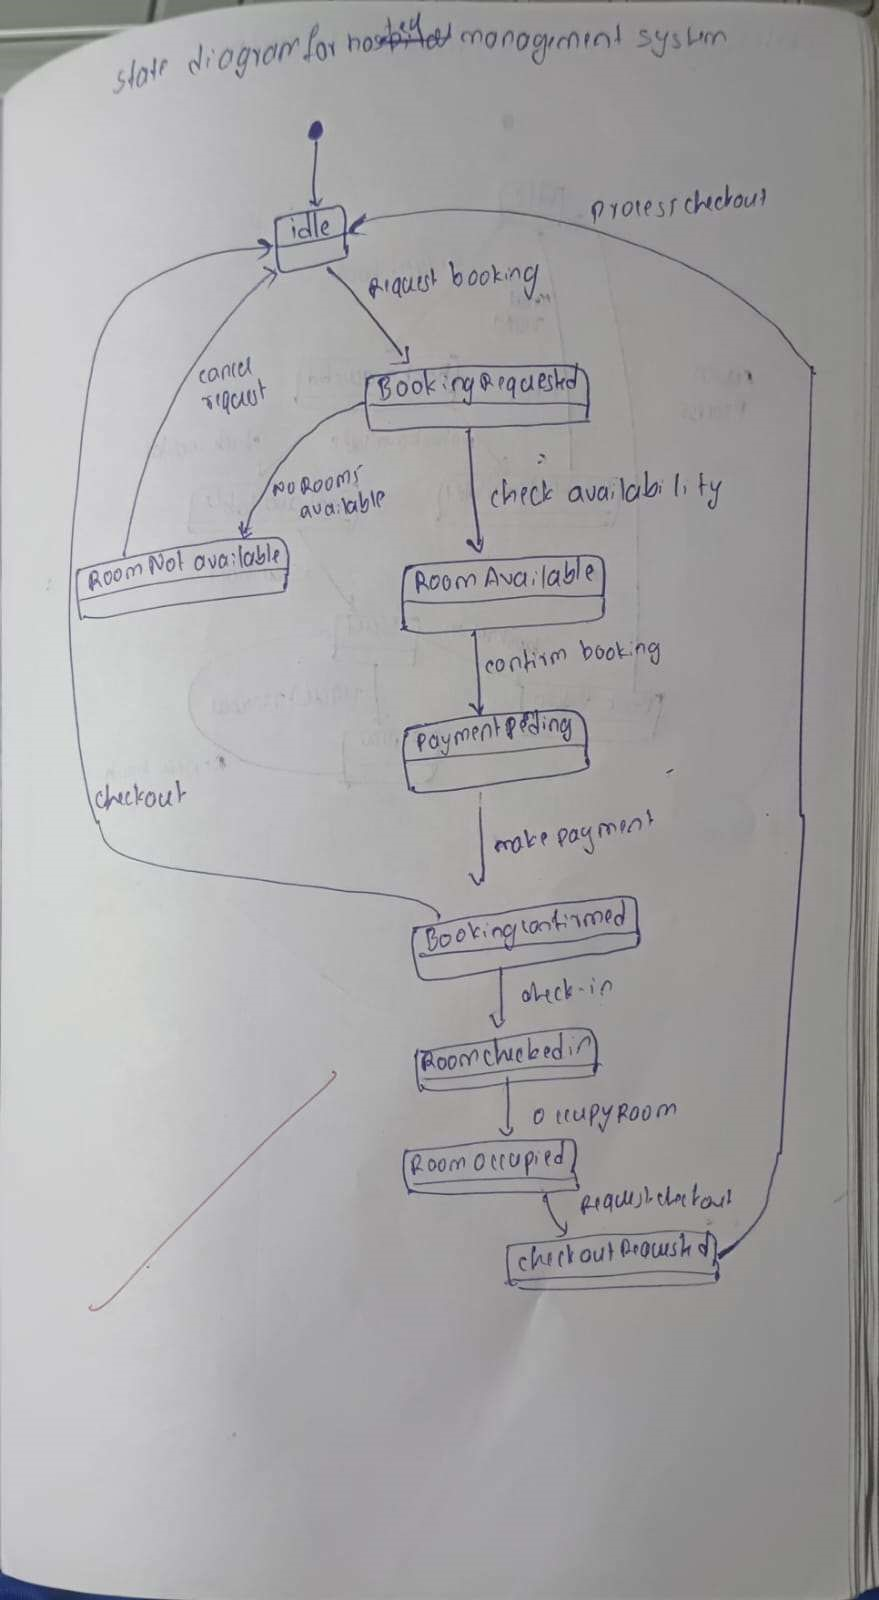 state diagram for management system
idle
process checkout
Request booking
cancel
request
BookingRequested
No Rooms
available
check availability
Room Not available
Room Available
confirm booking
payment peding
checkout
make payment
Booking confirmed
check-in
Room checked in
occupy Room
Room occupied
Request checkout
checkout Requested